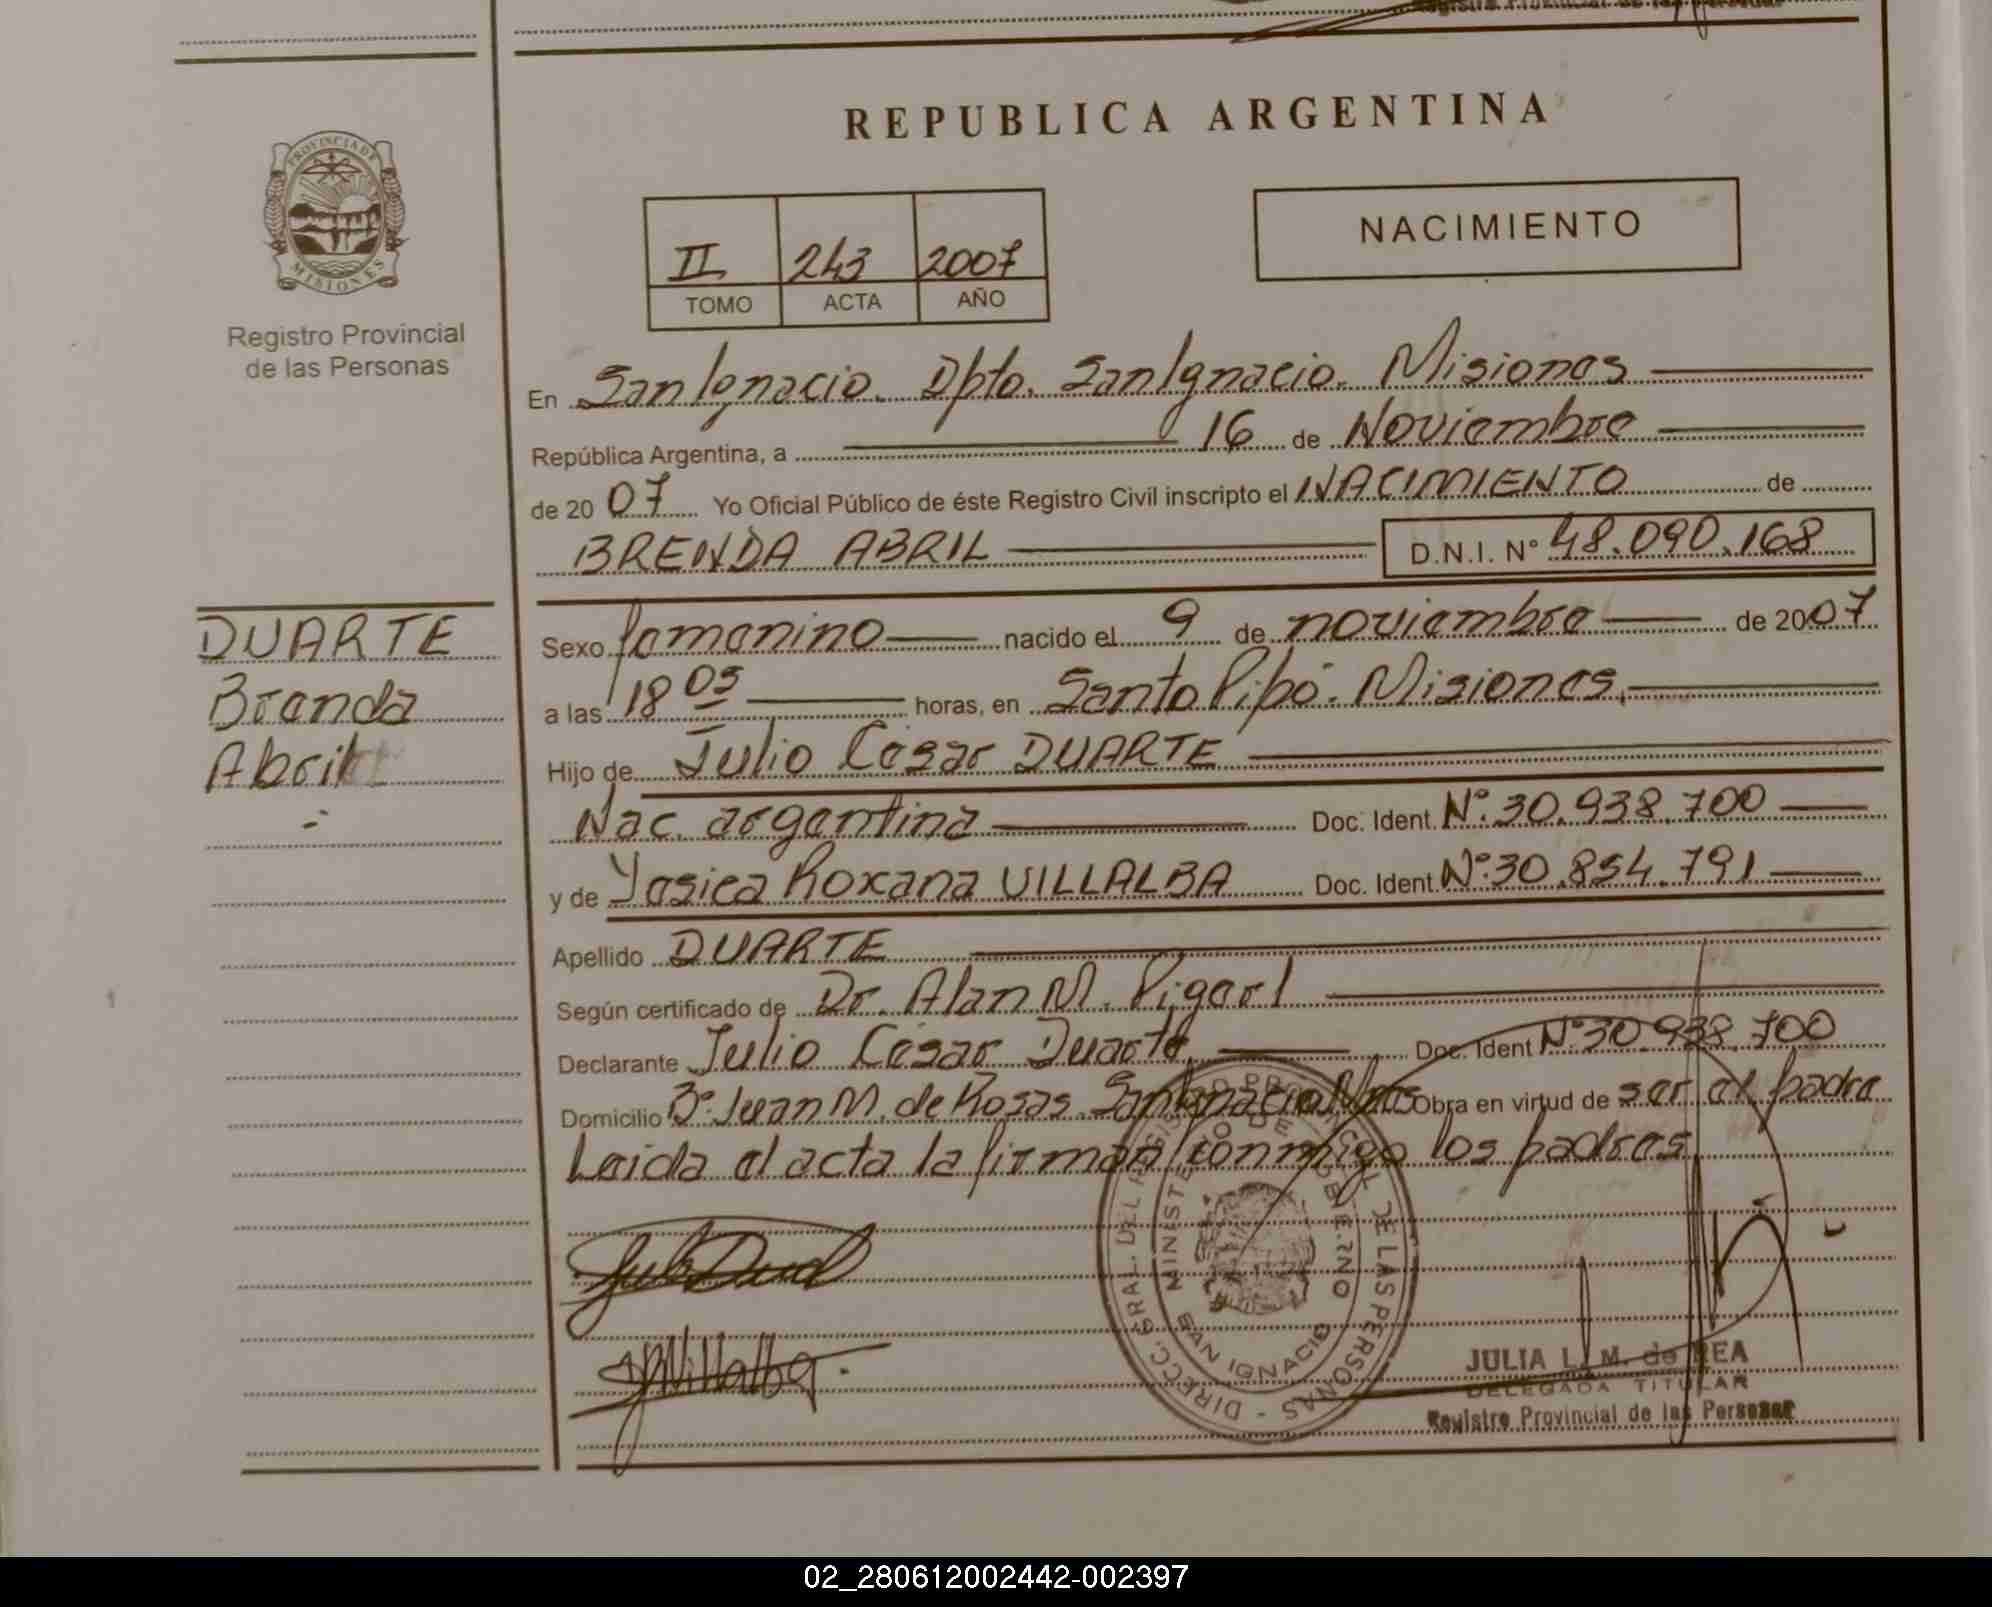 Registro Provincial de las Personas
REPUBLICA ARGENTINA
PROVINCIA DE
MISIONES
Registro Provincial
de las Personas
NACIMIENTO
II 243 2007
TOMO ACTA AÑO
En San Ignacio. Dpto. San Ignacio. Misiones
República Argentina, a 16 de Noviembre
de 2007 Yo Oficial Público de éste Registro Civil inscripto el NACIMIENTO de
BRENDA ABRIL D.N.I. Nº 48.090.168
DUARTE
Brenda
Abril
Sexo femenino nacido el 9 de noviembre de 2007
a las 18 05 horas, en Santo Pipó. Misiones.
Hijo de Julio César DUARTE
Nac. argentina Doc. Ident. Nº. 30.938.700
y de Yesica Roxana VILLALBA Doc. Ident. Nº. 30.854.791
Apellido DUARTE
Según certificado de Dr. Alan M.
Declarante Julio César Duarte Doc. Ident Nº. 30.938.700
Domicilio Bº. Juan M. de Rosas San Ignacio Mnes Obra en virtud de ser el padre
Leida el acta la firman conmigo los padres
DIRECC. GRAL. DEL REGISTRO PROVINCIAL DE LAS PERSONAS -
MINISTERIO DE GOBIERNO
SAN IGNACIO
Villalba
JULIA L. M. de REA
DELEGADA TITULAR
Registro Provincial de las Personas
02_280612002442-002397